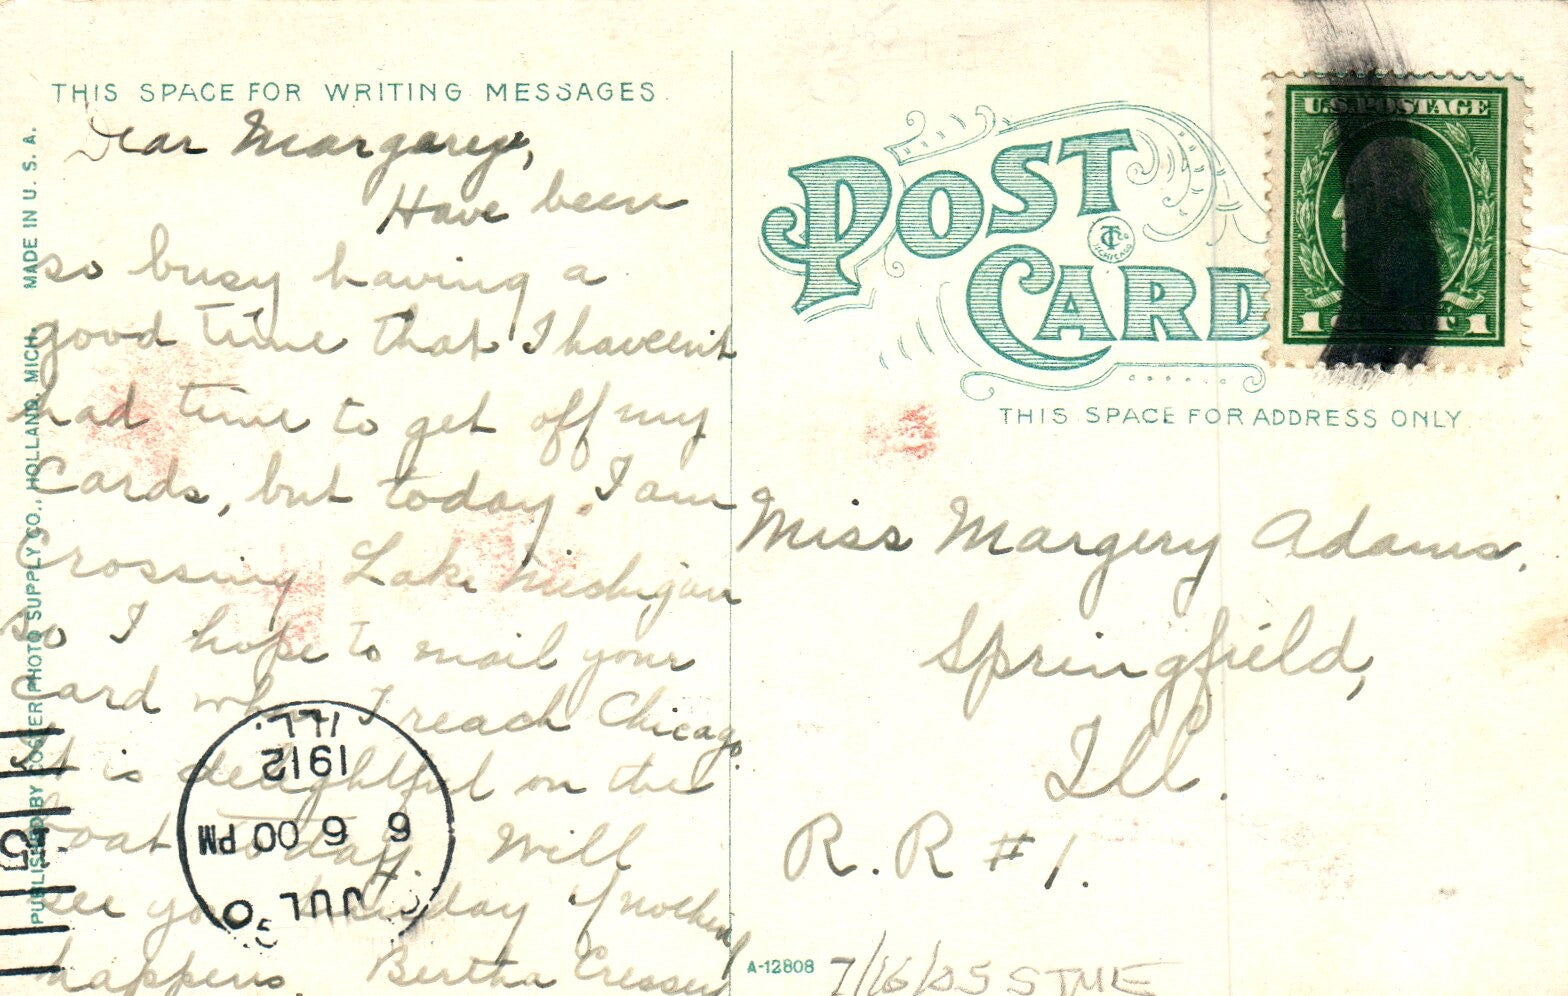 THIS SPACE FOR WRITING MESSAGES.
Dear Margery,
Have been
so busy having a
good time that I haveen't
had time to get off my
Cards, but today I am
Crossing Lake Michigan
so I hope to mail your
card when I reach Chicago.
It is delightful on the
boat today. Will
see you day if nothing
happens. Bertha Cressey
PUBLISHED BY COSTER PHOTO SUPPLY CO., HOLLAND, MICH. MADE IN U. S. A.
ILL.
1912
6 6 00 PM
JUL
POST
CARD
U.S. POSTAGE
1 1
THIS SPACE FOR ADDRESS ONLY
Miss Margery Adams,
Springfield,
Ill.
R. R #1.
A-12808
7/16/05 STME